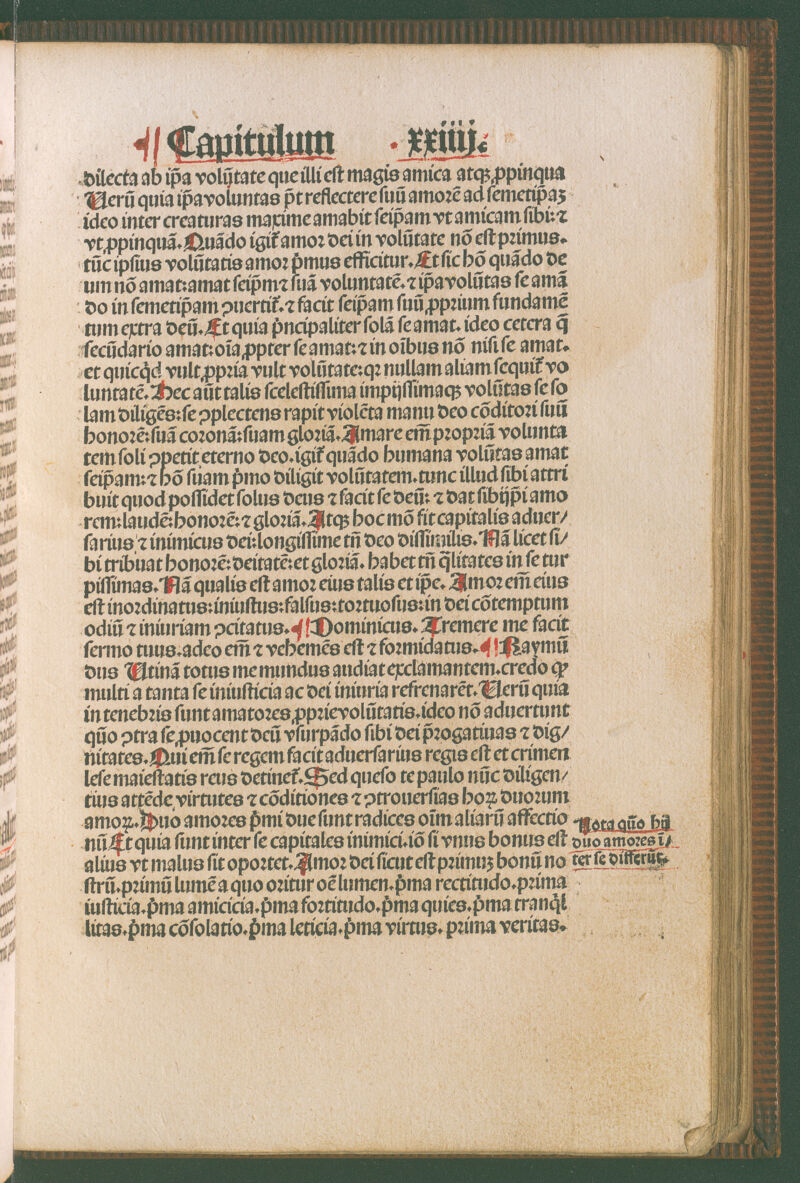 ¶ Capitulum .xxiiij.
dilecta ab ip̄a volūtate que illi est magis amica atqꝫ ꝓpinqua
Verū quia ip̄a voluntas p̄t reflectere suū amorē ad semetip̄aꝫ
ideo inter creaturas maxime amabit seip̄am vt amicam sibi: ⁊
vt ꝓpinquā. Quādo igit̄ amor dei in volūtate nō est primus.
tūc ipsius volūtatis amor p̄mus efficitur. Et sic hō quādo de
um nō amat: amat seip̄m ⁊ suā voluntatē. ⁊ ip̄a volūtas se amā
do in semetip̄am ꝯuertit̄. ⁊ facit seip̄am suū ꝓprium fundamē
tum extra deū. Et quia p̄ncipaliter solā se amat. ideo cetera q̄
secūdario amat: oīa ꝓpter se amat: ⁊ in oībus nō nisi se amat.
et quicq̇d vult ꝓpria vult volūtate: qꝛ nullam aliam sequit̄ vo
luntatē. Hec aūt talis sceleftissima impijssimaqꝫ volūtas se so
lam diligēs: se ꝯplectens rapit violēta manu deo cōditori suū
honorē: suā coronā: suam gloriā. Amare em̄ propriā volunta
tem soli ꝯpetit eterno deo. igit̄ quādo humana volūtas amat
seip̄am: ⁊ hō suam p̄mo diligit volūtatem. tunc illud sibi attri
buit quod possidet solus deus ⁊ facit se deū: ⁊ dat sibijp̄i amo
rem: laudē: honorē: ⁊ gloriā. Atqꝫ hoc mō fit capitalis aduer/
sarius ⁊ inimicus dei: longissime tn̄ deo dissimilis. Nā licet si/
bi tribuat honorē: deitatē: et gloriā. habet tn̄ q̄litates in se tur
pissimas. Nā qualis est amor eius talis et ip̄e. Amor em̄ eius
est inordinatus: iniustus: falsus: tortuosus: in dei cōtemptum
odiū ⁊ iniuriam ꝯcitatus. ¶ Dominicus. Tremere me facit
sermo tuus. adeo em̄ ⁊ vehemēs est ⁊ formidatus. ¶ Raymū
dus Utinā totus me mundus audiat exclamantem. credo ꝙ
multi a tanta se iniusticia ac dei iniuria refrenarēt. Verū quia
in tenebris sunt amatores ꝓprie volūtatis. ideo nō aduertunt
qūo ꝯtra se ꝓuocent deū vsurpādo sibi dei p̄rogatiuas ⁊ dig/
nitates. Qui em̄ se regem facit aduersarius regis est et crimen
lese maiestatis reus detinet̄. Sed queso te paulo nūc diligen/
tius attēde virtutes ⁊ cōditiones ⁊ ꝯtrouersias hoꝝ duorum
amoꝝ. Duo amores p̄mi due sunt radices oīm aliarū affectio
nū Et quia sunt inter se capitales inimici. iō si vnus bonus est
alius vt malus sit oportet. Amor dei sicut est primuꝫ bonū no
strū. primū lumē a quo oritur oē lumen. p̄ma rectitudo. prima
iusticia. p̄ma amicicia. p̄ma fortitudo. p̄ma quies. p̄ma tranq̇l
litas. p̄ma cōsolatio. p̄ma leticia. p̄ma virtus. prima veritas.
Nota qūo hij
duo amores ī/
ter se differūt.